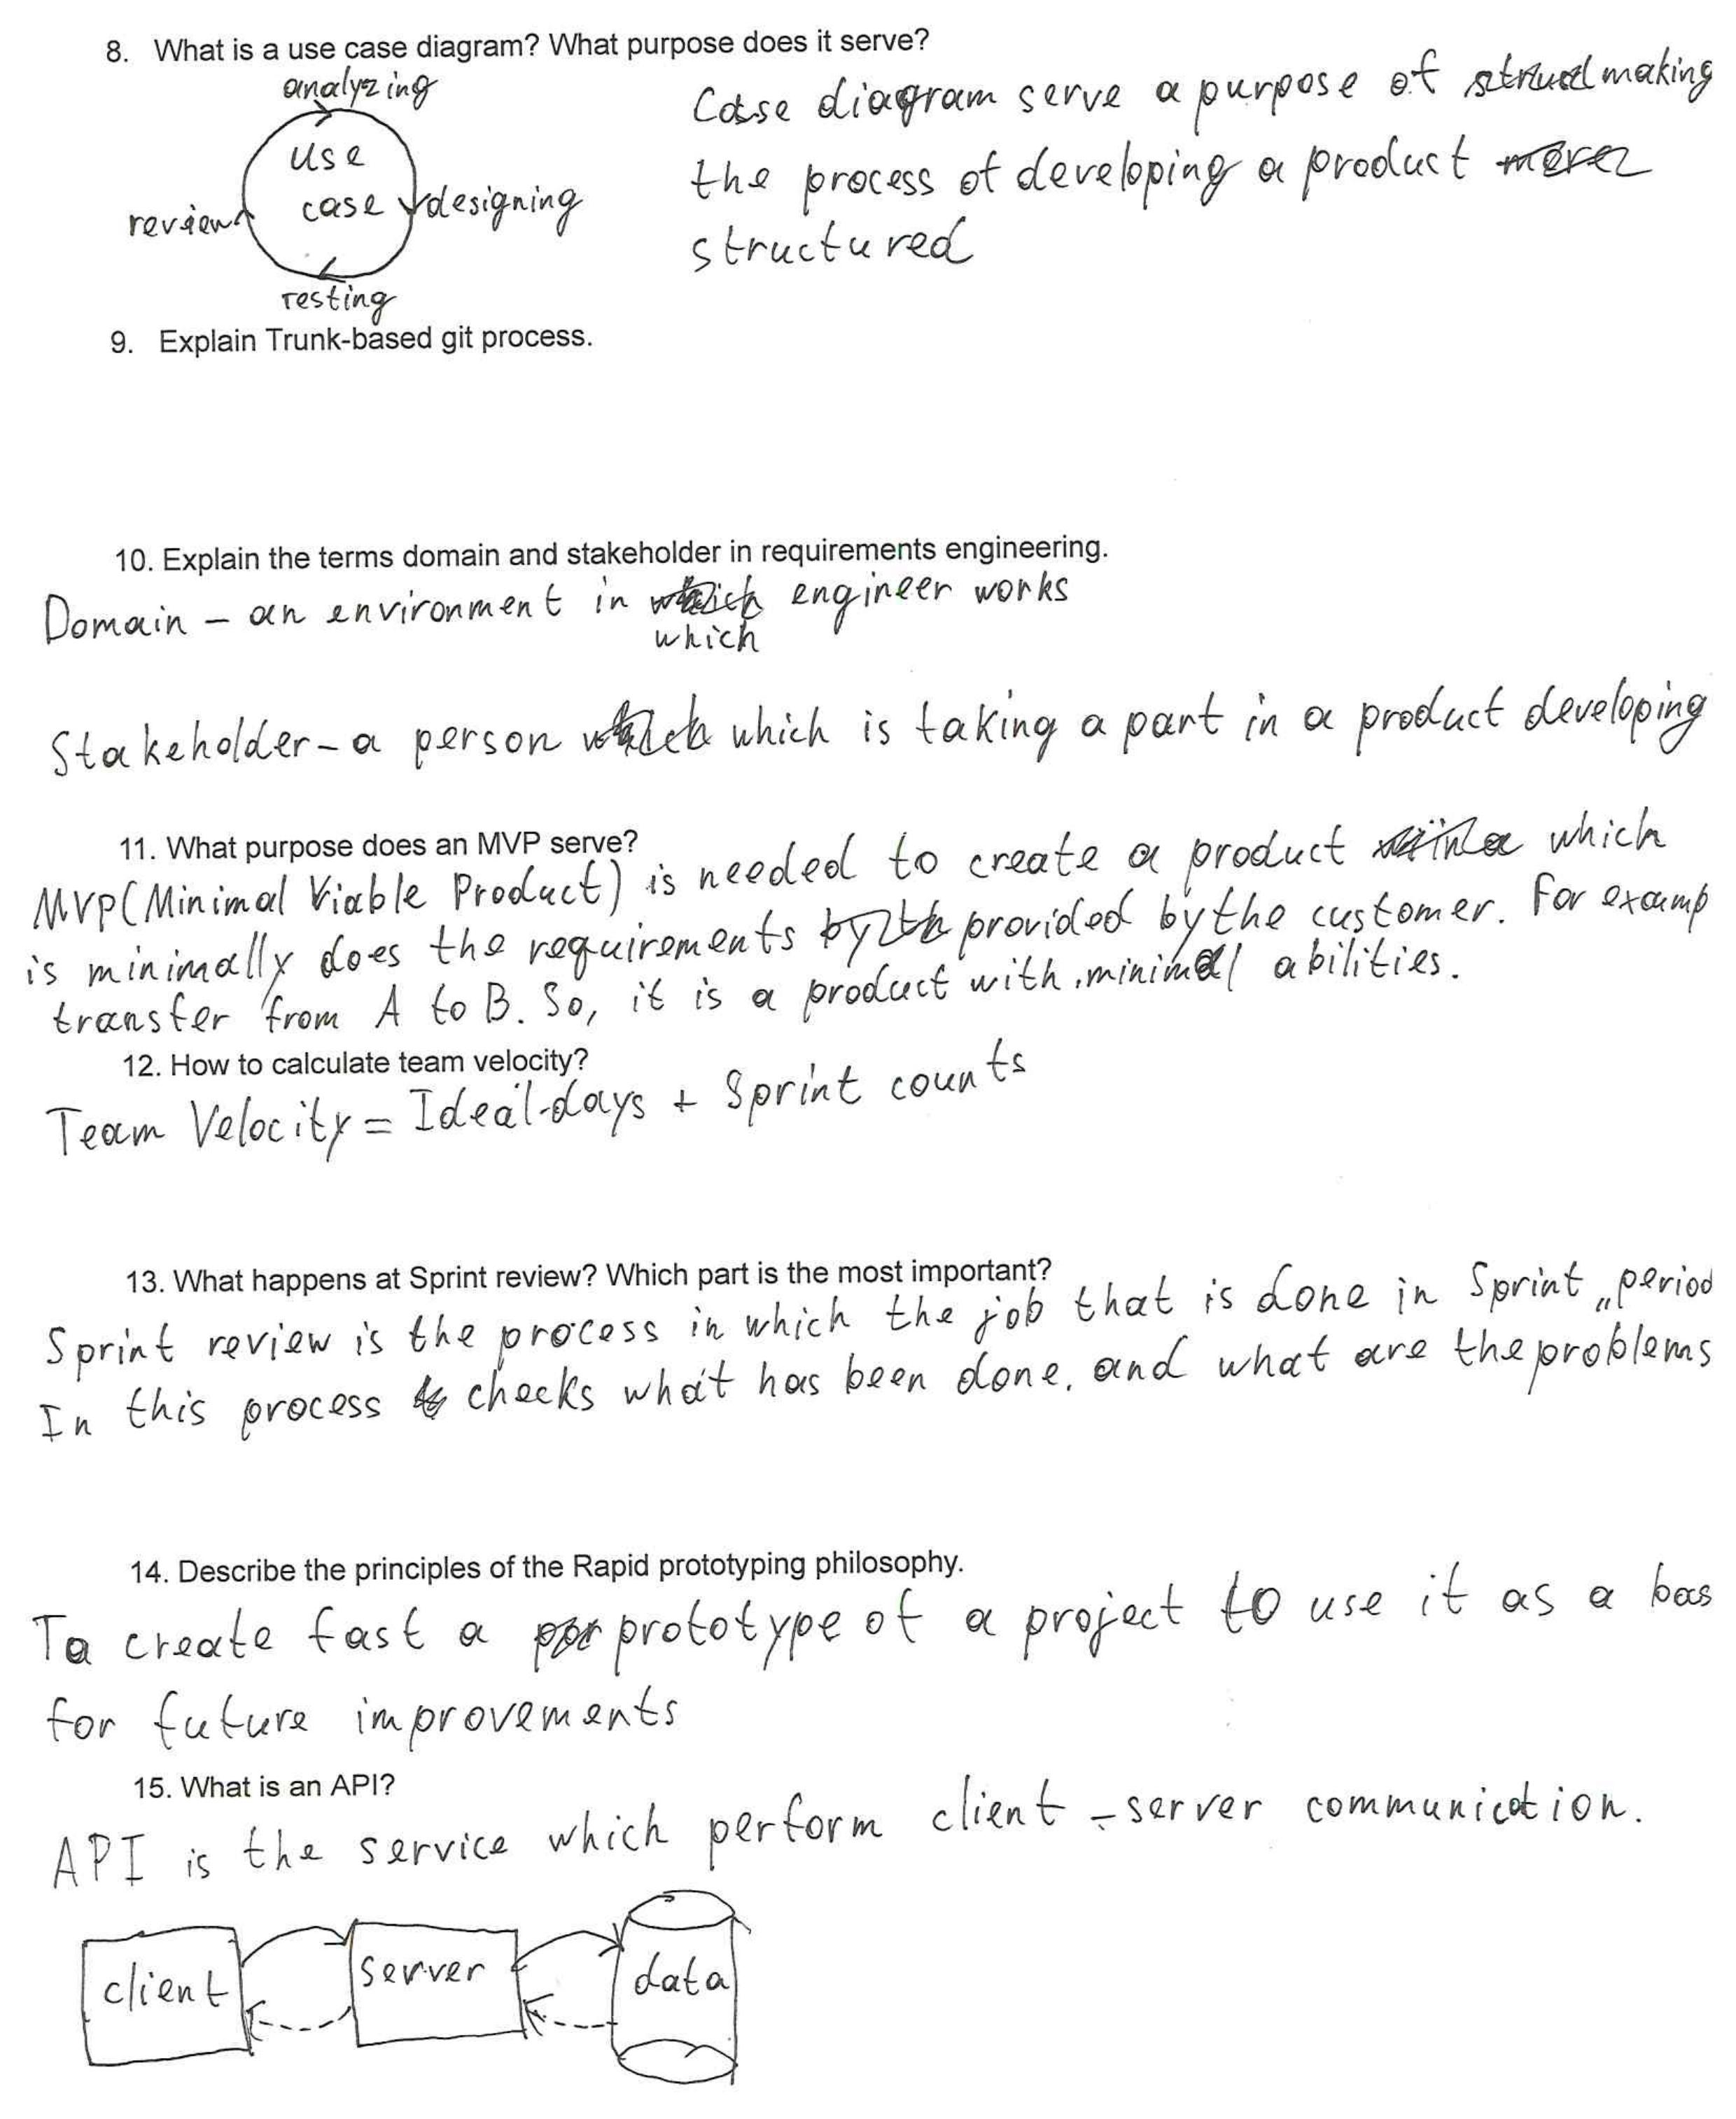 8. What is a use case diagram? What purpose does it serve?
analyzing
use
case
designing
review
resting
Case diagram serve a purpose of making
the process of developing a product
structured
9. Explain Trunk-based git process.
10. Explain the terms domain and stakeholder in requirements engineering.
Domain - an environment in which engineer works
Stakeholder - a person which is taking a part in a product developing
11. What purpose does an MVP serve?
MVP (Minimal Viable Product) is needed to create a product which
is minimally does the requirements provided by the customer. For examp
transfer from A to B. So, it is a product with minimal abilities.
12. How to calculate team velocity?
Team Velocity = Ideal-days + Sprint counts
13. What happens at Sprint review? Which part is the most important?
Sprint review is the process in which the job that is done in Sprint „period
In this process checks what has been done, and what are the problems
14. Describe the principles of the Rapid prototyping philosophy.
To create fast a prototype of a project to use it as a bas
for future improvements
15. What is an API?
API is the service which perform client - server communication.
client
server
data